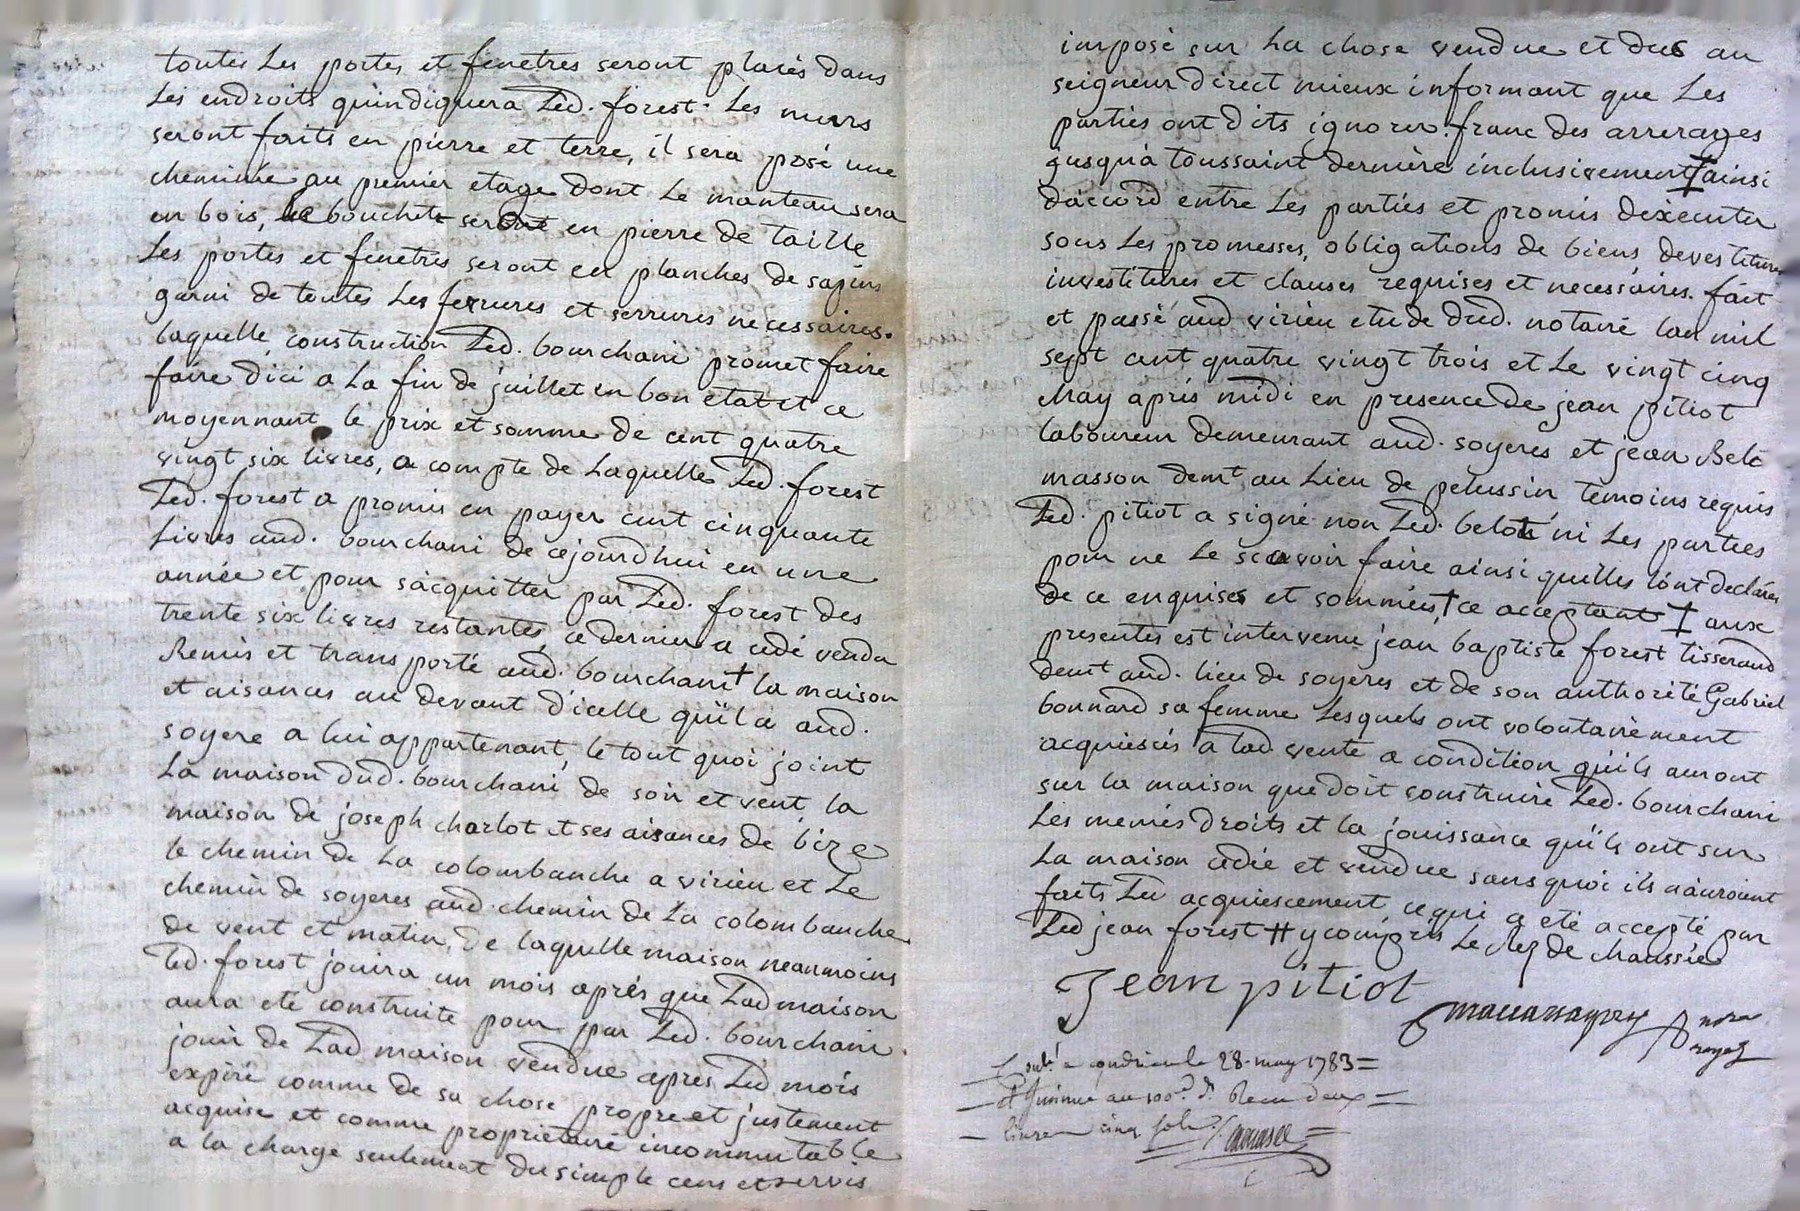 toutes Les portes et fenetres seront placés dans
Les endroits qu'indiquera Led. forest. Les murs
seront faits en pierre et terre, il sera posé une
cheminée au premier etage dont Le manteau sera
en bois, bouchet seront en pierre de taille
Les portes et fenetres seront en planches de sapins
garni de toutes Les ferrures et serrures necessaires.
laquelle construction Led. bourchani promet faire
faire dici a La fin de juillet en bon etat et ce
moyennant le prix et somme de cent quatre
vingt six livres, a compte de Laquelle Led. forest
Led. forest a promis en payer cent cinquante
Livres aud. bourchani de cejourdhui en une
année et pour s'acquitter par Led. forest des
trente six livres restantes ce dernier a cedé vendu
Remis et transporté aud. bourchani † la maison
et aisances au devant d'icelle qu'il a aud.
soyere a lui appartenant, le tout quoi joint
La maison dud. bourchani de soir et vent, la
maison de joseph charlot et ses aisances de bize
le chemin de La colombanche a virieu et Le
chemin de soyeres aud. chemin de La colombanche
de vent et matin, de laquelle maison neanmoins
Led. forest jouira un mois aprés que Lad maison
aura eté construite pour par Led. bourchani
jouir de Lad maison vendue aprés Led mois
expiré comme de sa chose propre et justement
acquise et comme proprietaire incommutable
a la charge seulement du simple cens et servis
imposé sur La chose vendue et dus au
seigneur direct mieux informant que Les
parties ont dits ignorer. franc des arrerages
jusqu'à toussaint dernière inclusivement ‡ ainsi
d'accord entre Les parties et promis d'exécuter
sous Les promesses, obligations de biens devestitures
investitures et clauses requises et necessaires. fait
et passé aud virieu etude dud. notaire lan mil
sept cent quatre vingt trois et Le vingt cinq
May aprés midi en presence de jean pitiot
laboureur demeurant aud. soyeres et jean Belé
masson demt au Lieu de pelussin, temoins requis
Led. pitiot a signé non Led. belot ni Les parties
pour ne Le scavoir faire ainsi quelles l'ont declarés
de ce enquises et sommées † ce acceptant ‡ aux
presentes est intervenu jean baptiste forest tisserand
demt aud. lieu de soyeres et de son authorité Gabriel
bonnard sa femme Lesquels ont volontairement
acquiescés a lad vente a condition qu'ils auront
sur la maison que doit construire Led. bourchani
Les memes droits et la jouissance qu'ils ont sur
La maison cedée et vendue sans quoi ils n'auroient
faits Led acquiescement ce qui a eté accepté par
Led jean forest # y compris Le Rez de chaussée
Jean pitiot
nore
royal
a condrieu le 28. may 1783 =
au 100e. d. Recu deux =
livres cinq sols